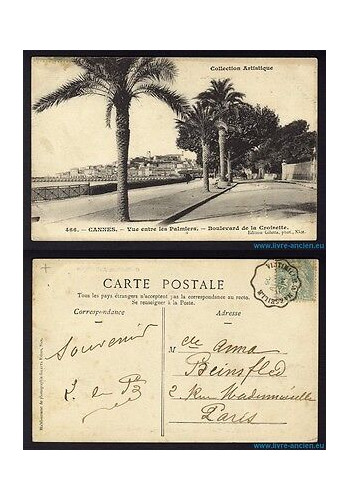 Collection Artistique
466. - CANNES. - Vue entre les Palmiers. - Boulevard de la Croisette.
Edition Giletta, phot., Nice.
www.livre-ancien.eu
CARTE POSTALE
Tous les pays étrangers n'acceptent pas la correspondance au recto.
Se renseigner à la Poste.
Correspondance
Adresse
Souvenir
M elle Anna
Beinsfled
2 Rue Mademoiselle
Paris
www.livre-ancien.eu